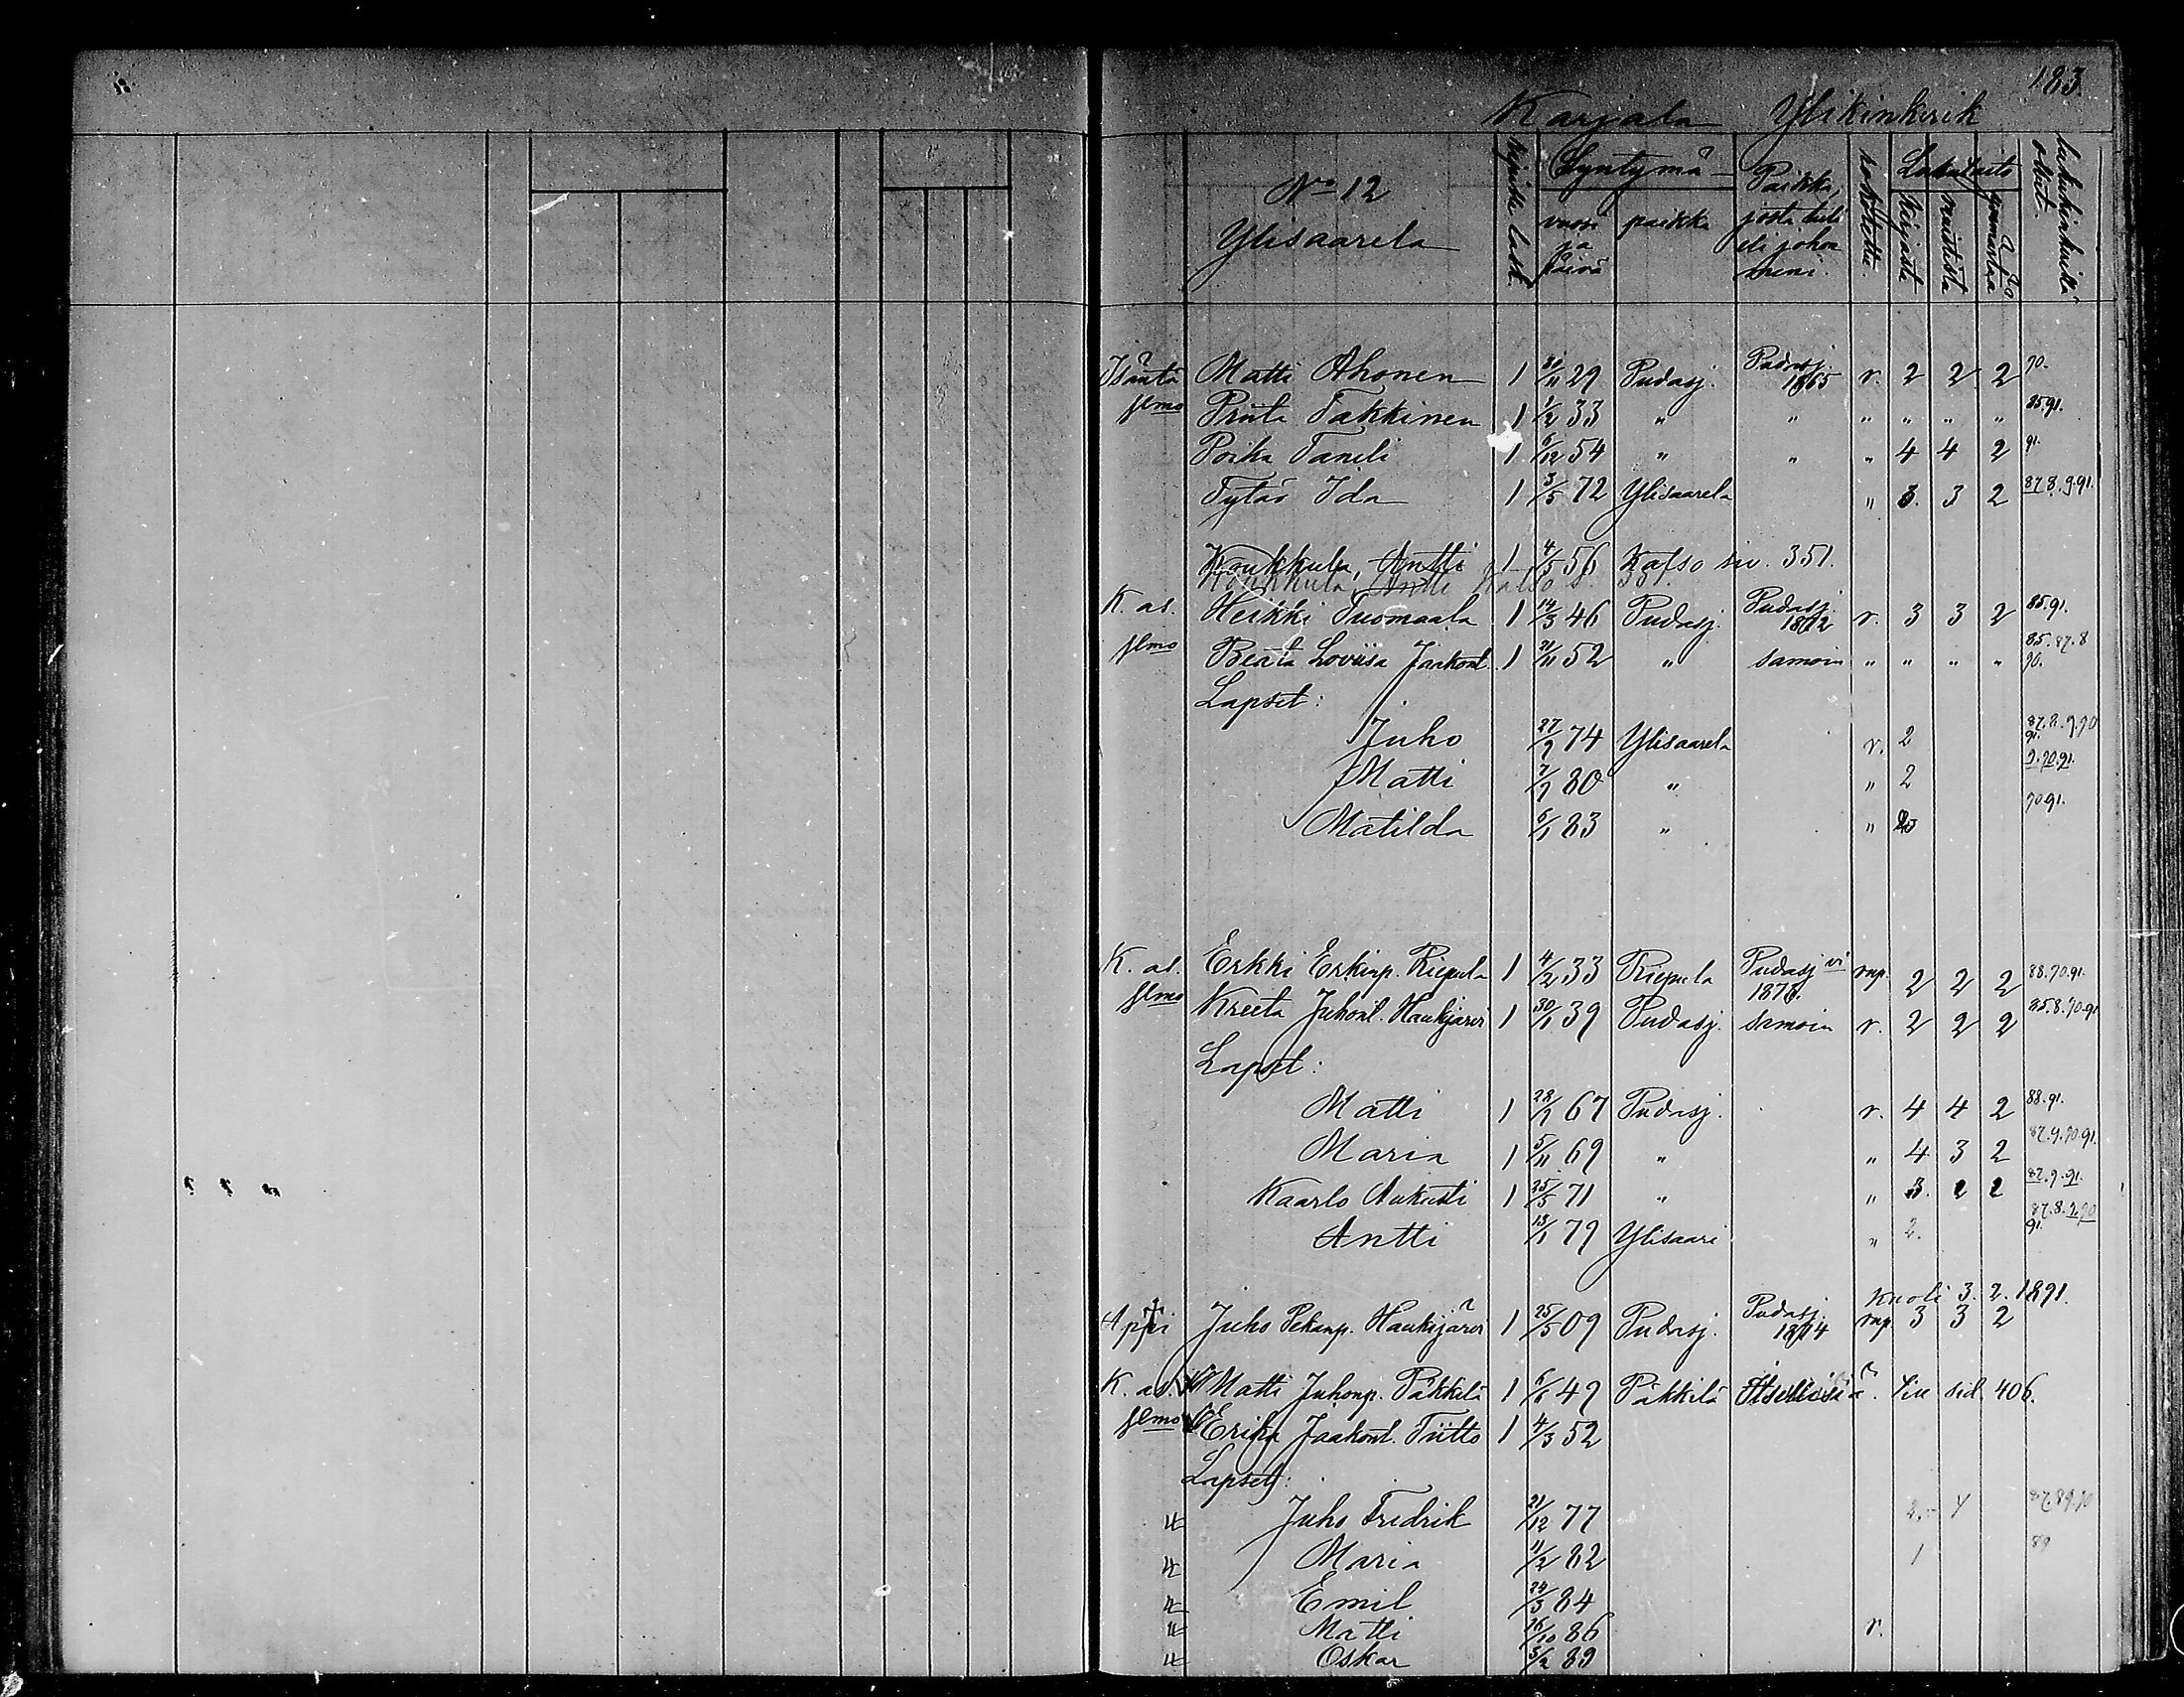 183.
Karjala Ylikinkerik
No 12
Ylisaarela
Syntymä-
vuosi ja päivä
paikka
Paikka, josta tuli eli johon meni.
rokotettu.
Lukutaito
kirjasta
muistista
ymmärtää
lukukinkerillä ollut.
Isäntä Matti Ahonen 1 30/11 29 Pudasj. Pudasj. 1865 r. 2 2 2 90.
Priita Takkinen 1 1/2 33 " " " " " " 85.91.
Poika Taneli 1 6/12 54 " " " 4 4 2 91.
Tytär Ida 1 3/5 72 Ylisaarela " 3. 3 2 87.8.9.91.
Koukkula, Antti 1 4/5 56 Katso siv. 351.
K. as. Heikki Tuomaala 1 14/3 46 Pudasj. Pudasj. 1872 r. 3 3 2 85.91.
Beata Loviisa Jaakont. 1 21/11 52 " samoin " " " " 85.87.8 90.
Lapset:
Juho 27/9 74 Ylisaarela r. 2 87.8.9.90 91.
Matti 7/9 80 " " 2 9.90.91.
Matilda 6/1 83 " " 90.91.
K. as. Erkki Erkinp. Riepula 1 4/2 33 Riepula Pudasj 1876. rup. 2 2 2 88.90.91.
Kreeta Juhont. Haukijärvi 1 30/1 39 Pudasj. samoin r. 2 2 2 85.8.90.91
Lapset:
Matti 1 28/9 67 Pudasj. r. 4 4 2 88.91.
Maria 1 5/11 69 " " 4 3 2 87.9.90.91.
Kaarlo Aukusti 1 25/5 71 " " 3. 2 2 87.9.91.
Antti 13/1 79 Ylisaari " 2. 87.8.9.90 91.
Kuoli 3. 2. 1891.
Appi Juho Pekanp. Haukijärvi 1 25/5 09 Pudasj. Pudasj. 1874 rup. 3 3 2
K. as. Matti Juhonp. Päkkilä 1 6/6 49 Päkkilä Itsellisiä siv. 406.
Erika Jaakont. Tiitto 1 4/3 52
Lapset:
Juho Fredrik 21/12 77 87.89.90
Maria 11/2 82 1 89
Emil 24/3 84
Matti 26/10 86 r.
Oskar 5/2 89